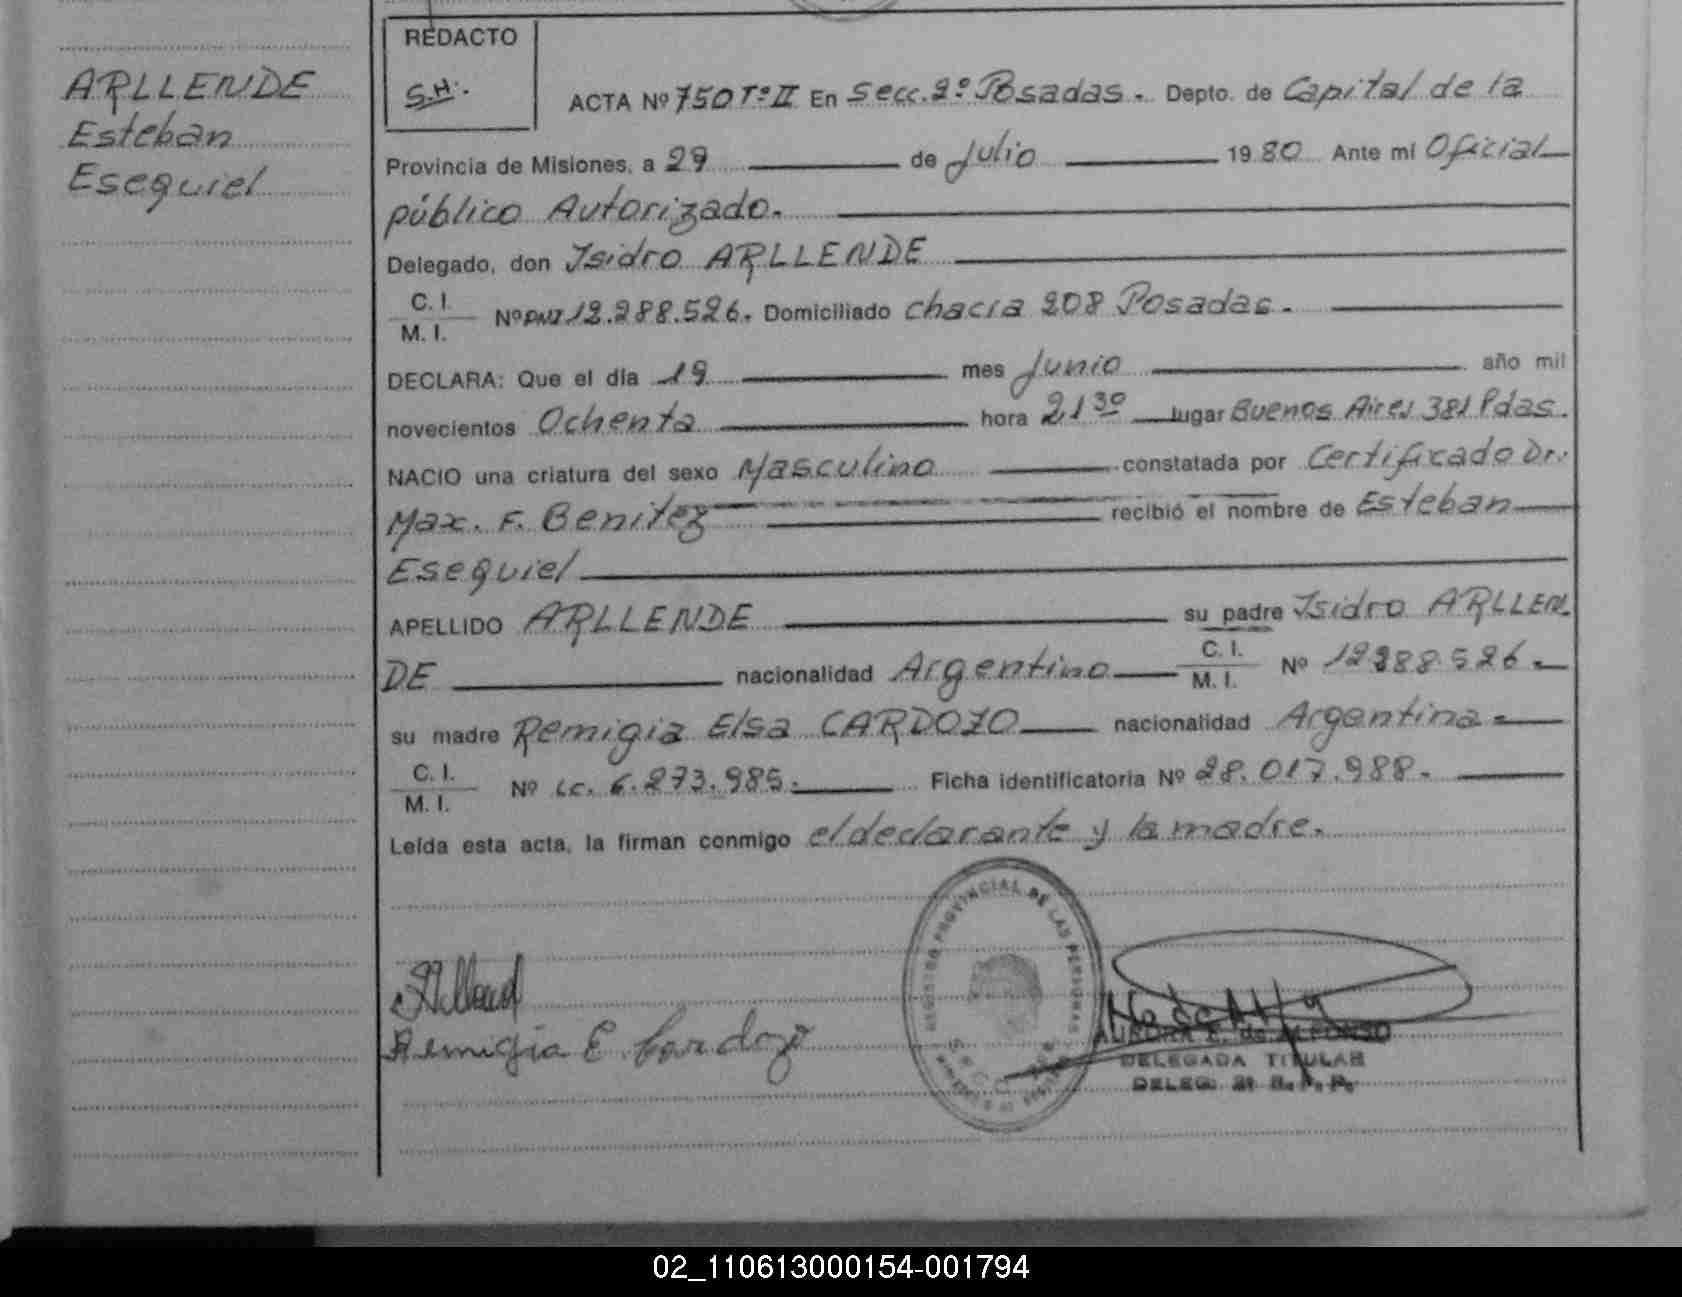 ARLLENDE
Esteban
Esequiel
REDACTO
S.H.
ACTA Nº 750 Tº II En Secc. 2º Posadas. Depto. de Capital de la
Provincia de Misiones, a 29 de Julio 1980 Ante mi Oficial
público Autorizado.
Delegado, don Isidro ARLLENDE
C. I.
M. I. Nº DNI 12.288.526. Domiciliado chacra 208 Posadas.
DECLARA: Que el día 19 mes Junio año mil
novecientos Ochenta hora 21 30 lugar Buenos Aires 381 Pdas.
NACIO una criatura del sexo Masculino constatada por Certificado Dr.
Max. F. Benitez recibió el nombre de Esteban
Esequiel
APELLIDO ARLLENDE su padre Isidro ARLLEN
DE nacionalidad Argentino C. I. M. I. Nº 12288.526.
su madre Remigia Elsa CARDOZO nacionalidad Argentina
C. I.
M. I. Nº LC. 6.273.985. Ficha identificatoria Nº 28.017.988.
Leída esta acta, la firman conmigo el declarante y la madre.
REGISTRO PROVINCIAL DE LAS PERSONAS
Remigia E. Cardozo
AURORA E. de ALFONSO
DELEGADA TITULAR
DELEG. 2ª R. P. P.
02_110613000154-001794